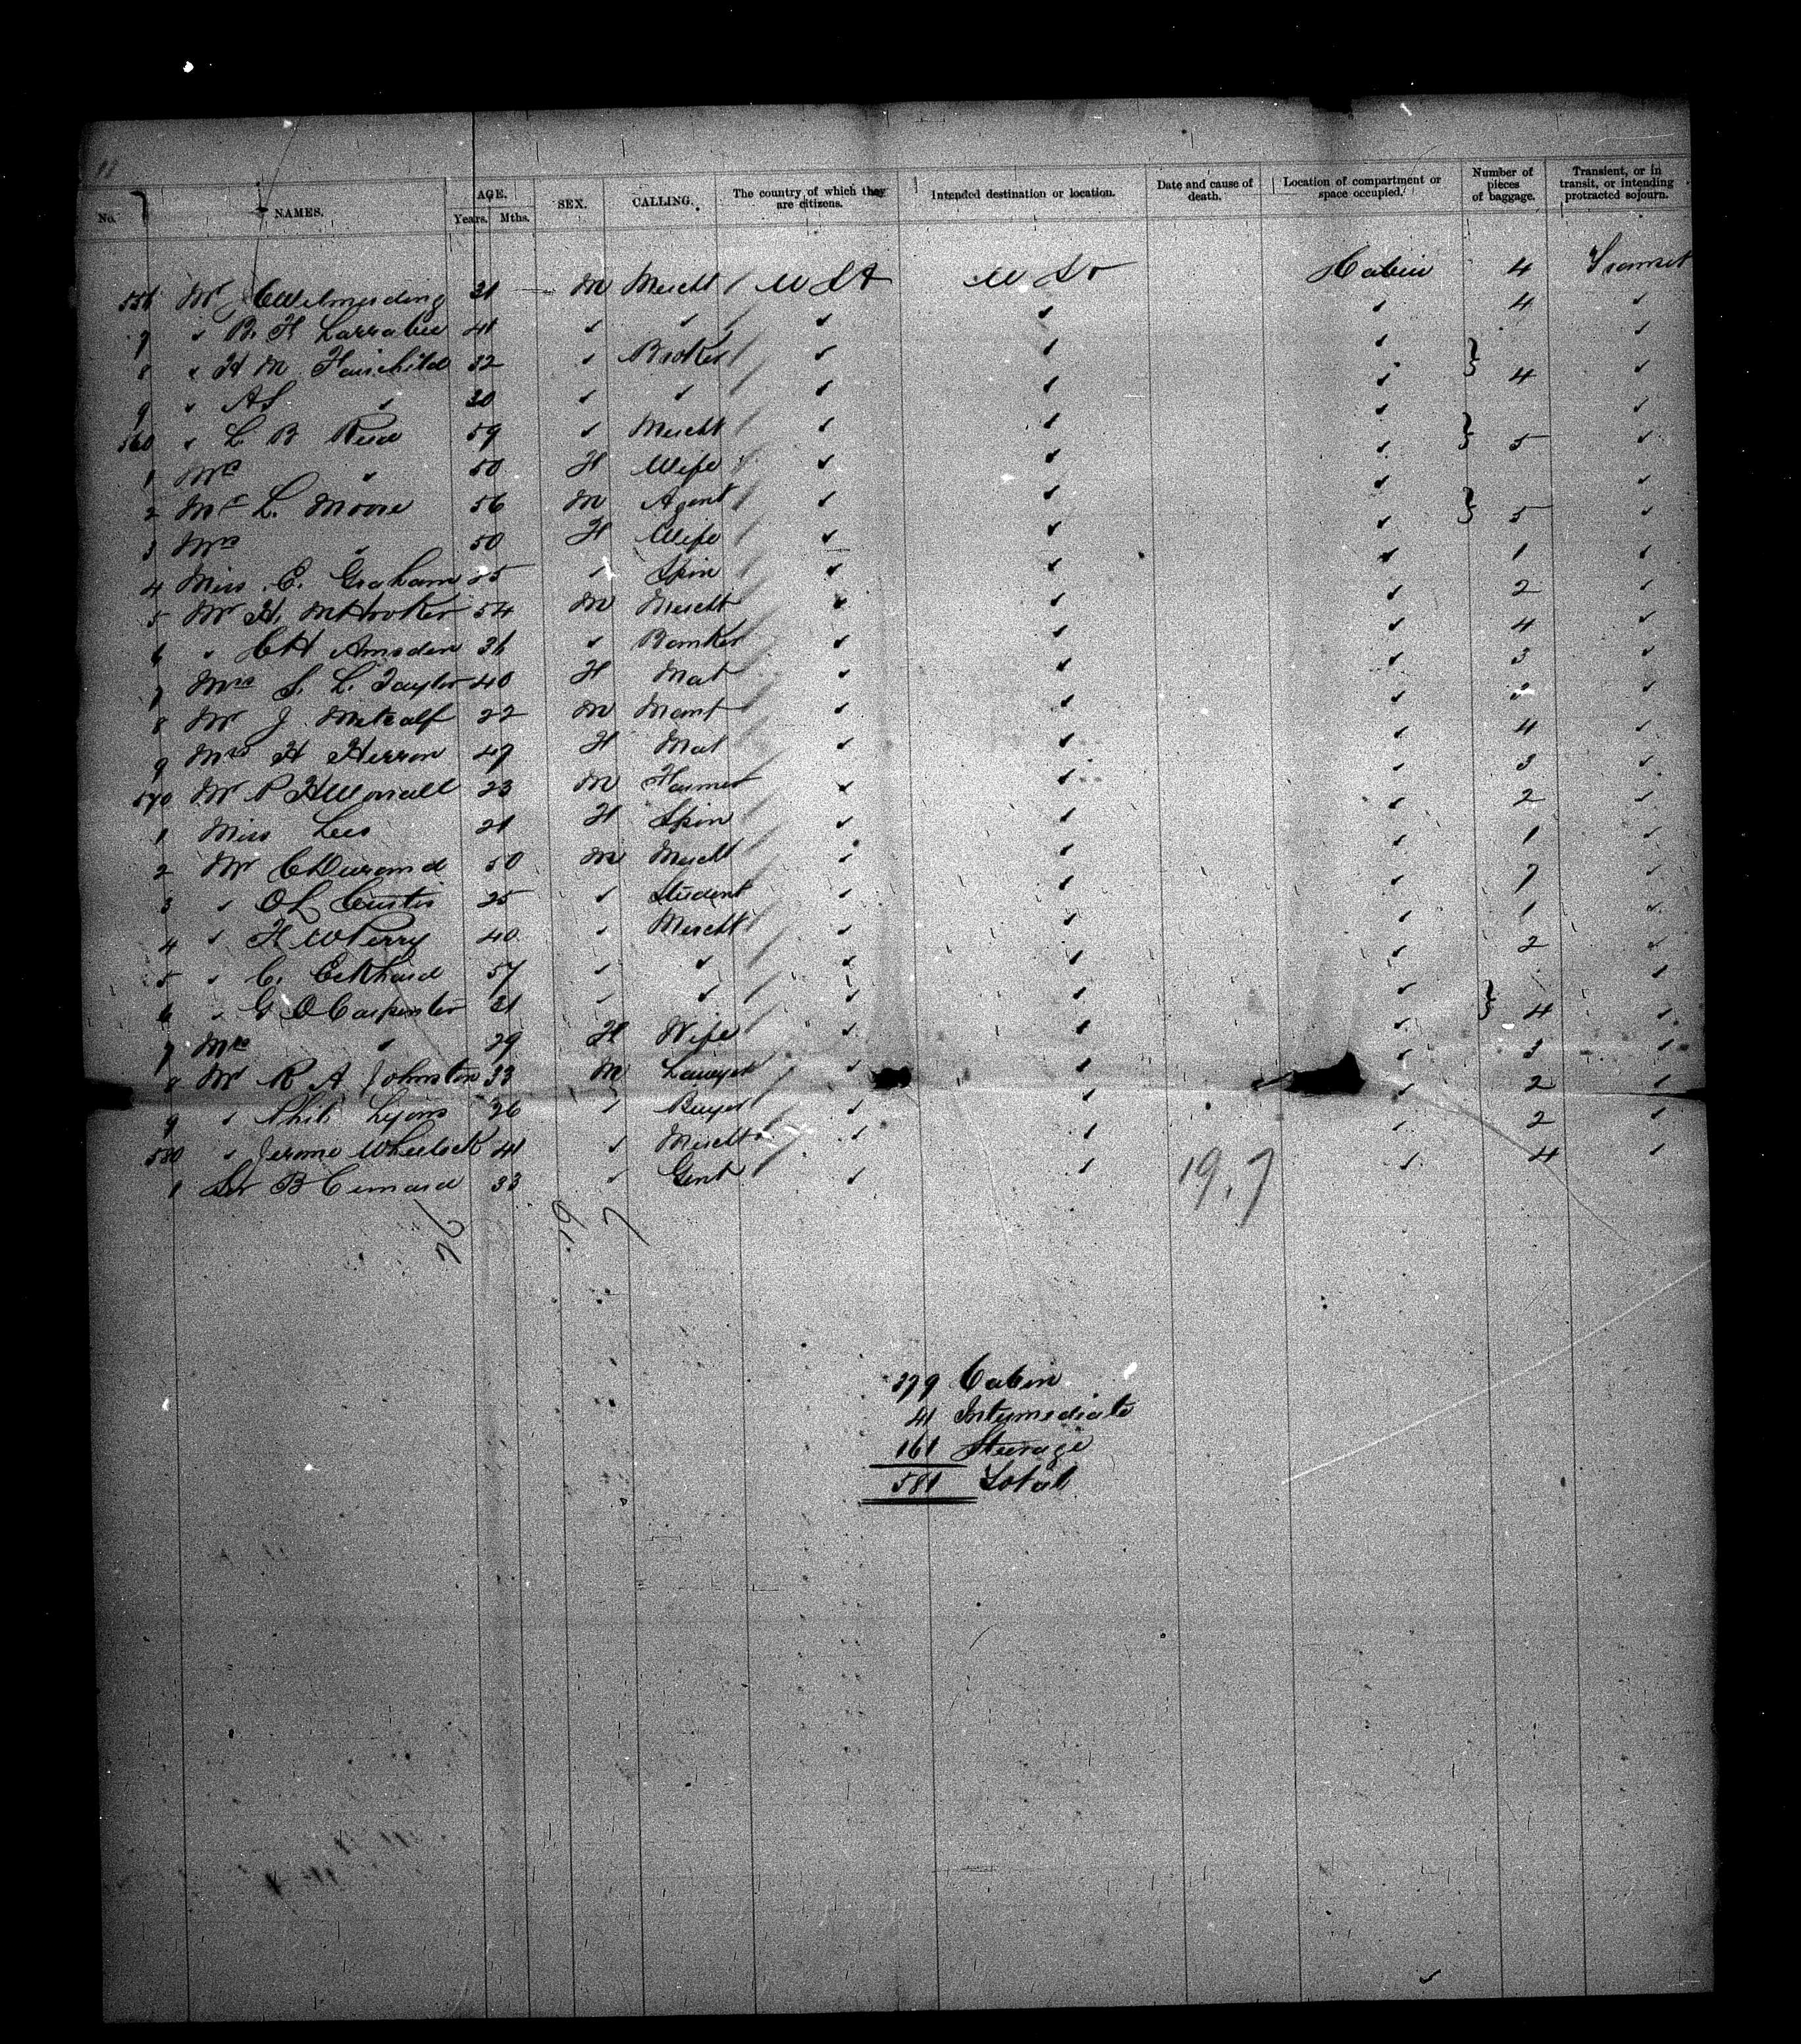 No. NAMES. AGE. Years. Mths. SEX. CALLING. The country of which they are citizens. Intended destination or location. Date and cause of death. Location of compartment or space occupied. Number of pieces of baggage. Transient, or in transit, or intending protracted sojourn.
556 Mr 31 M Mercht U St U St Cabin 4 Transit
7 " B. H Larrabee 41 " " " " " 4 "
8 " H M Fairchild 32 " Broker " " " "
9 " AS " 30 " " " " " 4 "
560 " L B 59 " Mercht " " " "
1 Mrs " 50 F Wife " " " 5 "
2 Mr L. Moore 56 M Agent " " " "
3 Mrs " 50 F Wife " " " 5 "
4 Miss E. Graham 25 " Spin " " " 1 "
5 Mr H. M Hooker 54 M Mercht " " " 2 "
6 " C H Amsden 31 " Banker " " " 4 "
7 Mrs S. L. Taylor 40 F Mat " " " 3 "
8 Mr J Metcalf 22 M " " " "
9 Mrs H Herron 47 F Mat " " " 4 "
570 Mr P H 23 M Farmer " " " 3 "
1 Miss Lees 21 F Spin " " " 2 "
2 Mr C Durand 50 M Mercht " " " 1 "
3 " O L Curtis 25 " Student " " " 7 "
4 " H W Perry 40 " Mercht " " " 1 "
5 " C. Eckhard 57 " " " " " 2 "
6 " G O Carpenter 31 " " " " " "
7 Mrs " 29 F Wife " " " 4 "
8 Mr R A Johnston 33 M Lawyer " " " 3 "
9 " Phil Lyons 26 " Buyer " " " 2 "
580 " Jerome Wheelock 41 " Mercht " " " 2 "
1 Sir B Cunard 33 " Gent " " " 4 "
19.7
26 19 7
379 Cabin
41 Intermediate
161 Steerage
581 Total